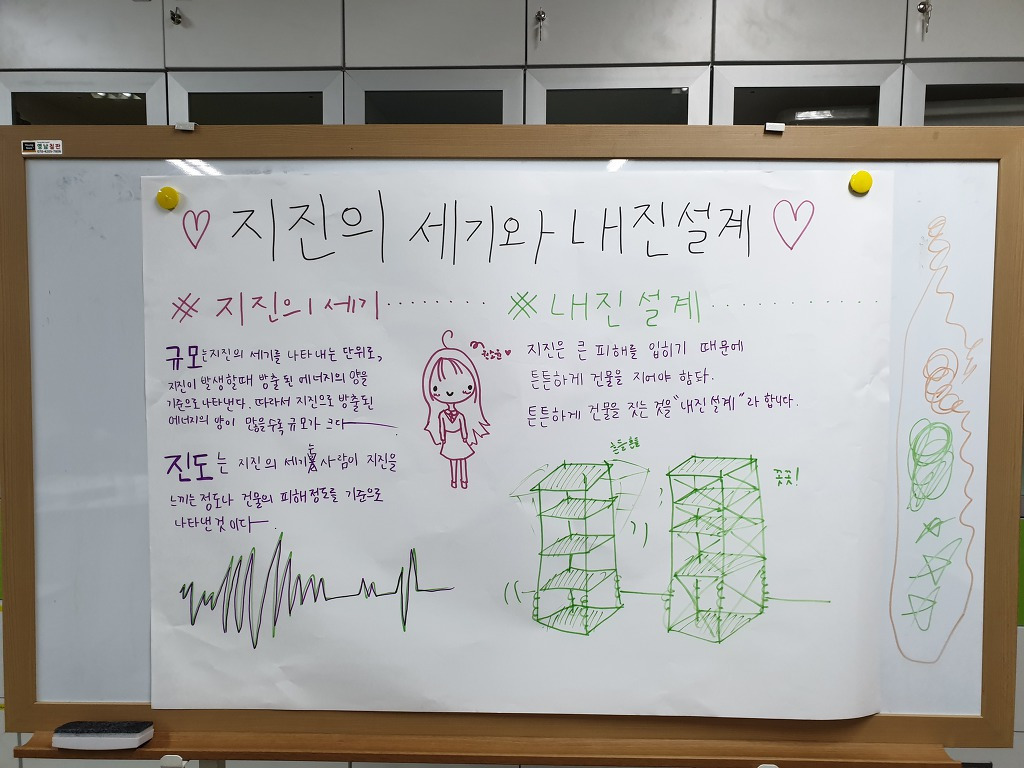 지진의 세기와 내진설계
지진의 세기
규모는 지진의 세기를 나타내는 단위로,
지진이 발생할때 방출된 에너지의 양을
기준으로 나타낸다. 따라서 지진으로 방출된
에너지의 양이 많을수록 규모가 크다
진도는 지진의 세기를 사람이 지진을
느끼는 정도나 건물의 피해정도를 기준으로
나타낸것이다.
내진설계
지진은 큰 피해를 입히기 때문에
튼튼하게 건물을 지어야 함돠.
튼튼하게 건물을 짓는 것을 "내진설계"라 합니다.
흔들흔들
꼿꼿!